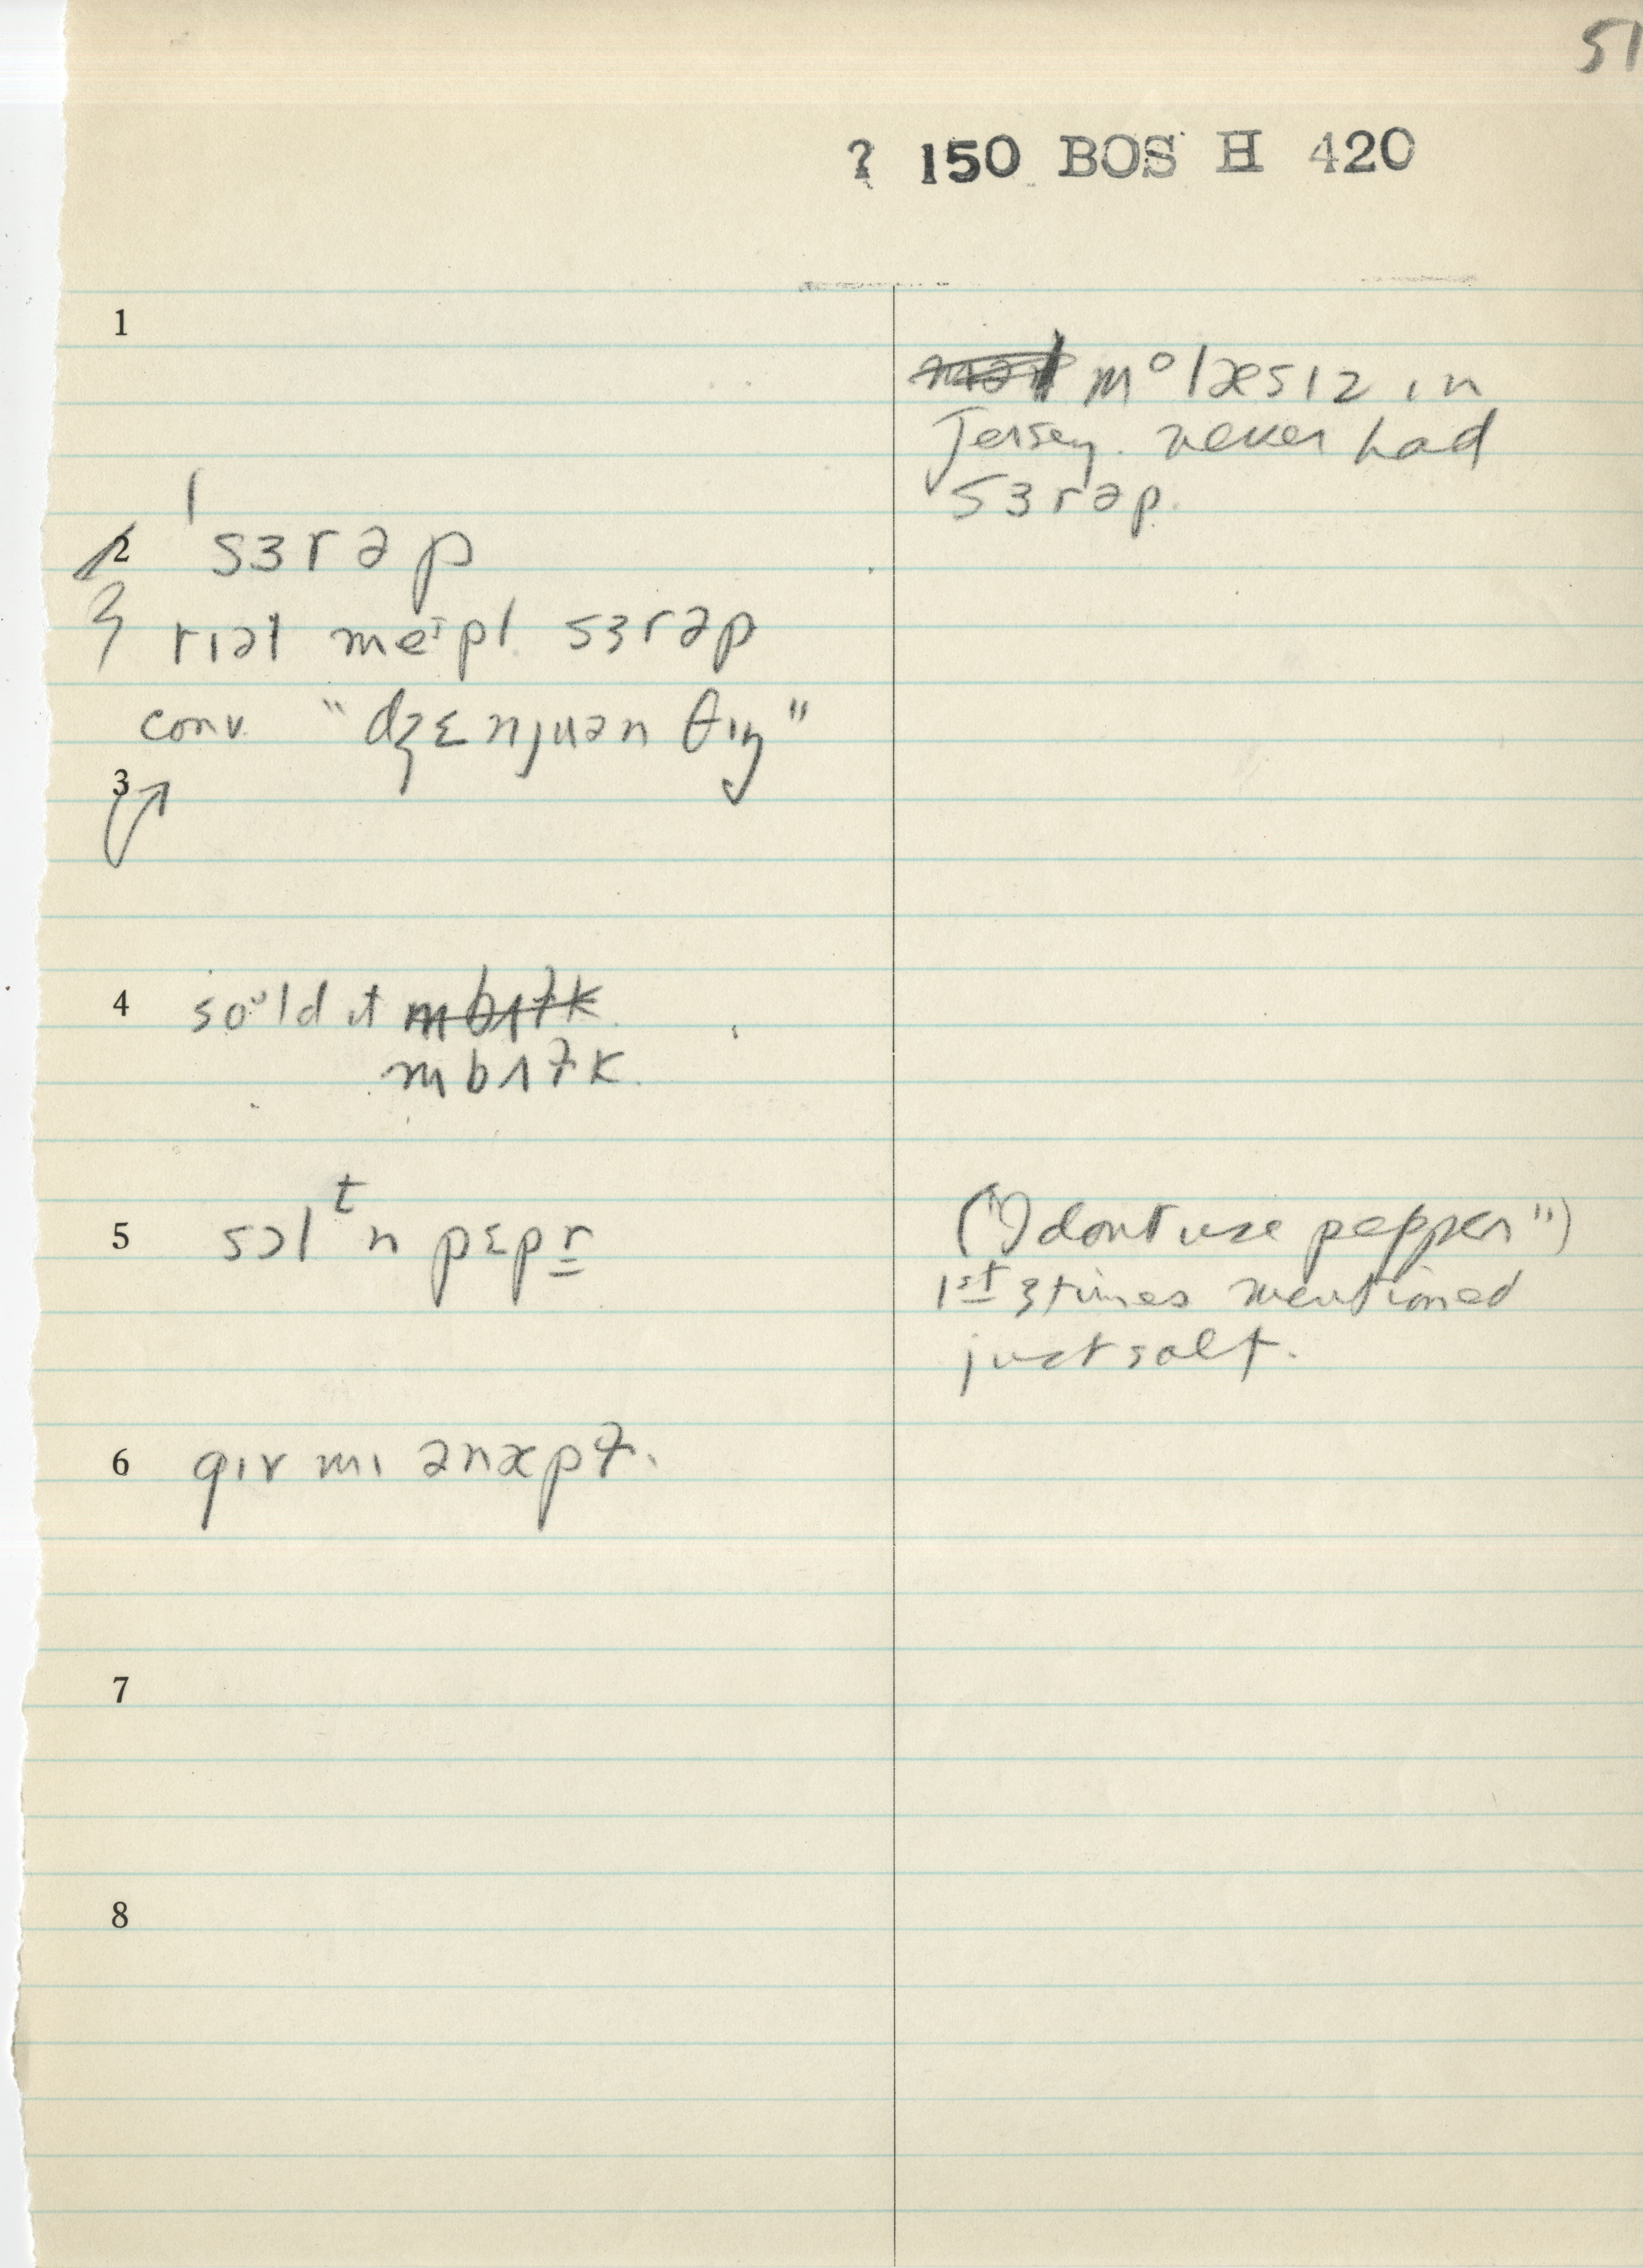 51
? 150 BOS H 420
1
mᵒlæsɪz ɪn
Jersey. never had
sɜrəp.
2 ˈsɜrəp
rɪəl meᶦpl sɜrəp
conv. "dʒɛnjuən θɪŋ"
3
4 soᵘld ɪt
ɪn bʌɫk.
5 sɔlᵗn pɛpr
("I dont use pepper")
1st 3 times mentioned
just salt.
6 gɪv mi ən æpɫ.
7
8